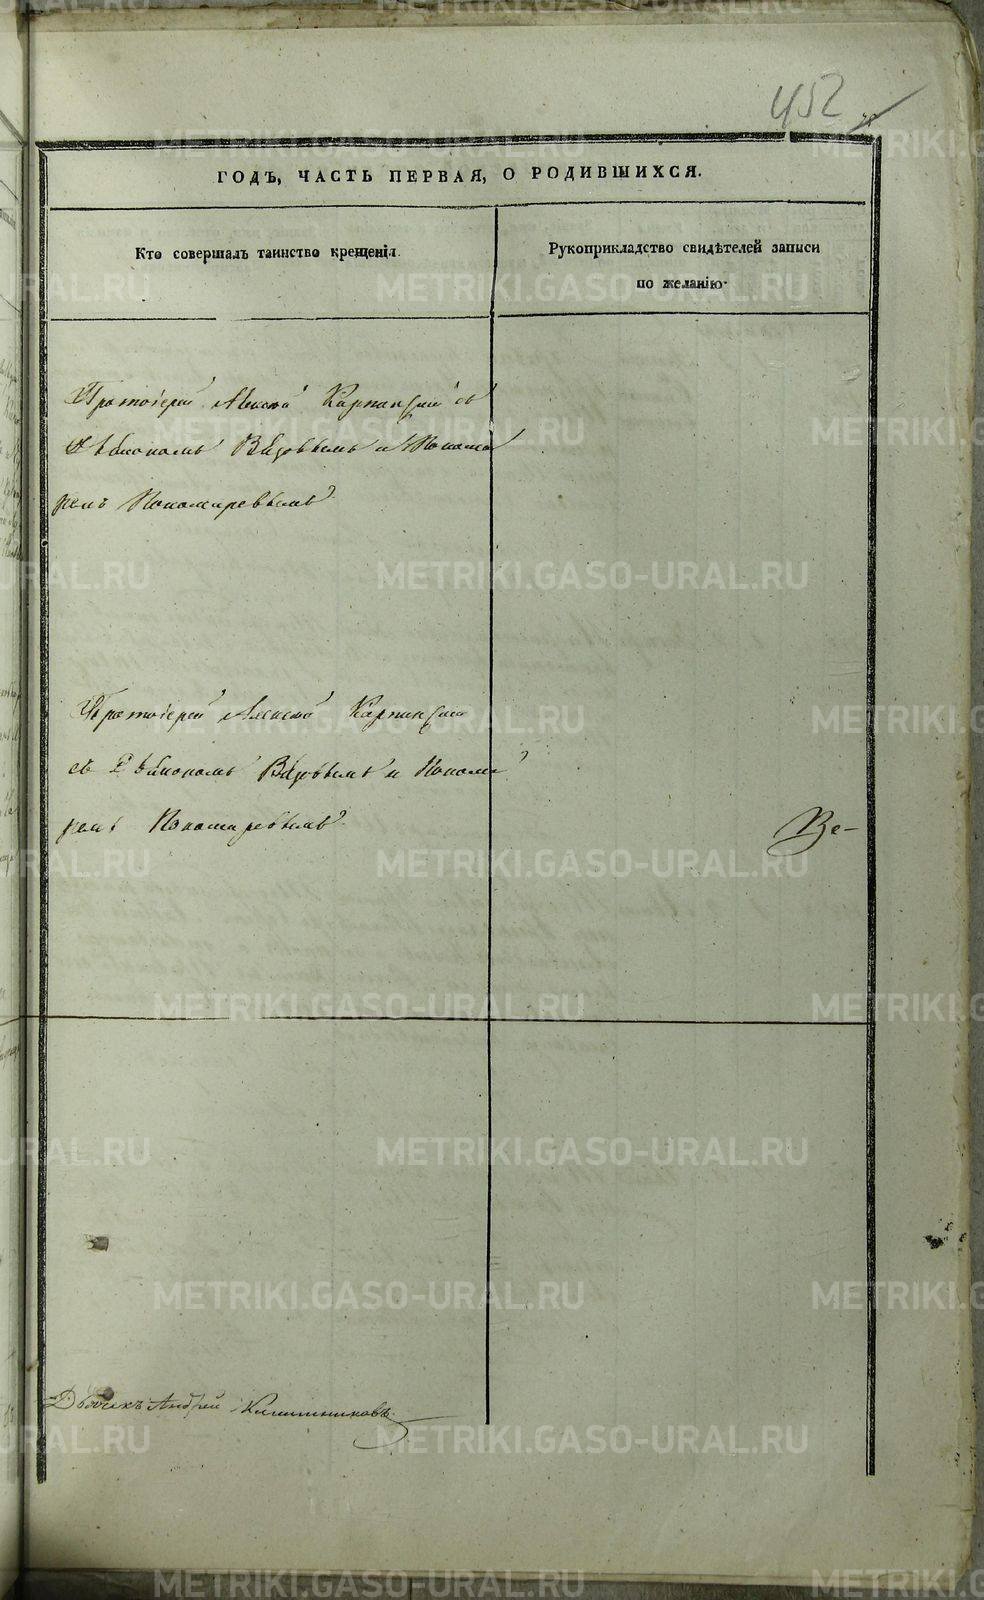 452
ГОДЪ, ЧАСТЬ ПЕРВАЯ, О РОДИВШИХСЯ.
Кто совершалъ таинство крещенія.
Рукоприкладство свидѣтелей записи
по желанію.
Протоіерей Алексій Карпинскій съ
Діякономъ и Понома
ремъ Пономаревымъ
Протоіерей Алексій Карпинскій
съ Діякономъ и Понома
ремъ Пономаревымъ
Ве-
Дьячекъ Андрей
METRIKI.GASO-URAL.RU